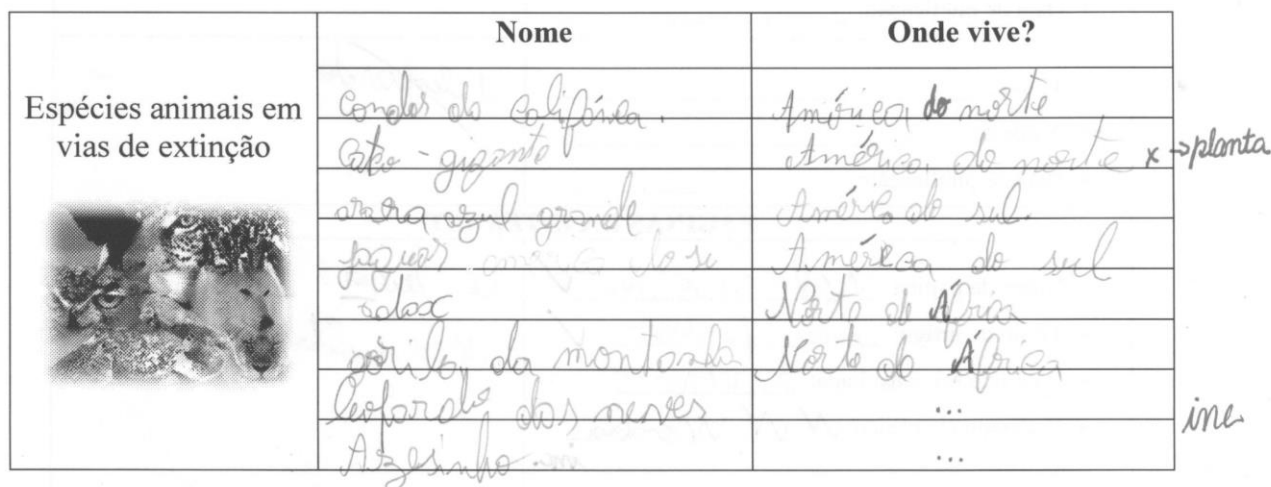 Nome Onde vive?
Espécies animais em
vias de extinção
Condor da Califórnia. América do norte
Cato-gigante América do norte x →planta
arara azul grande América do sul.
jaguar america do su América do sul
adax Norte de África
gorila da montanha Norte de África
leopardo das neves ...
ine
...